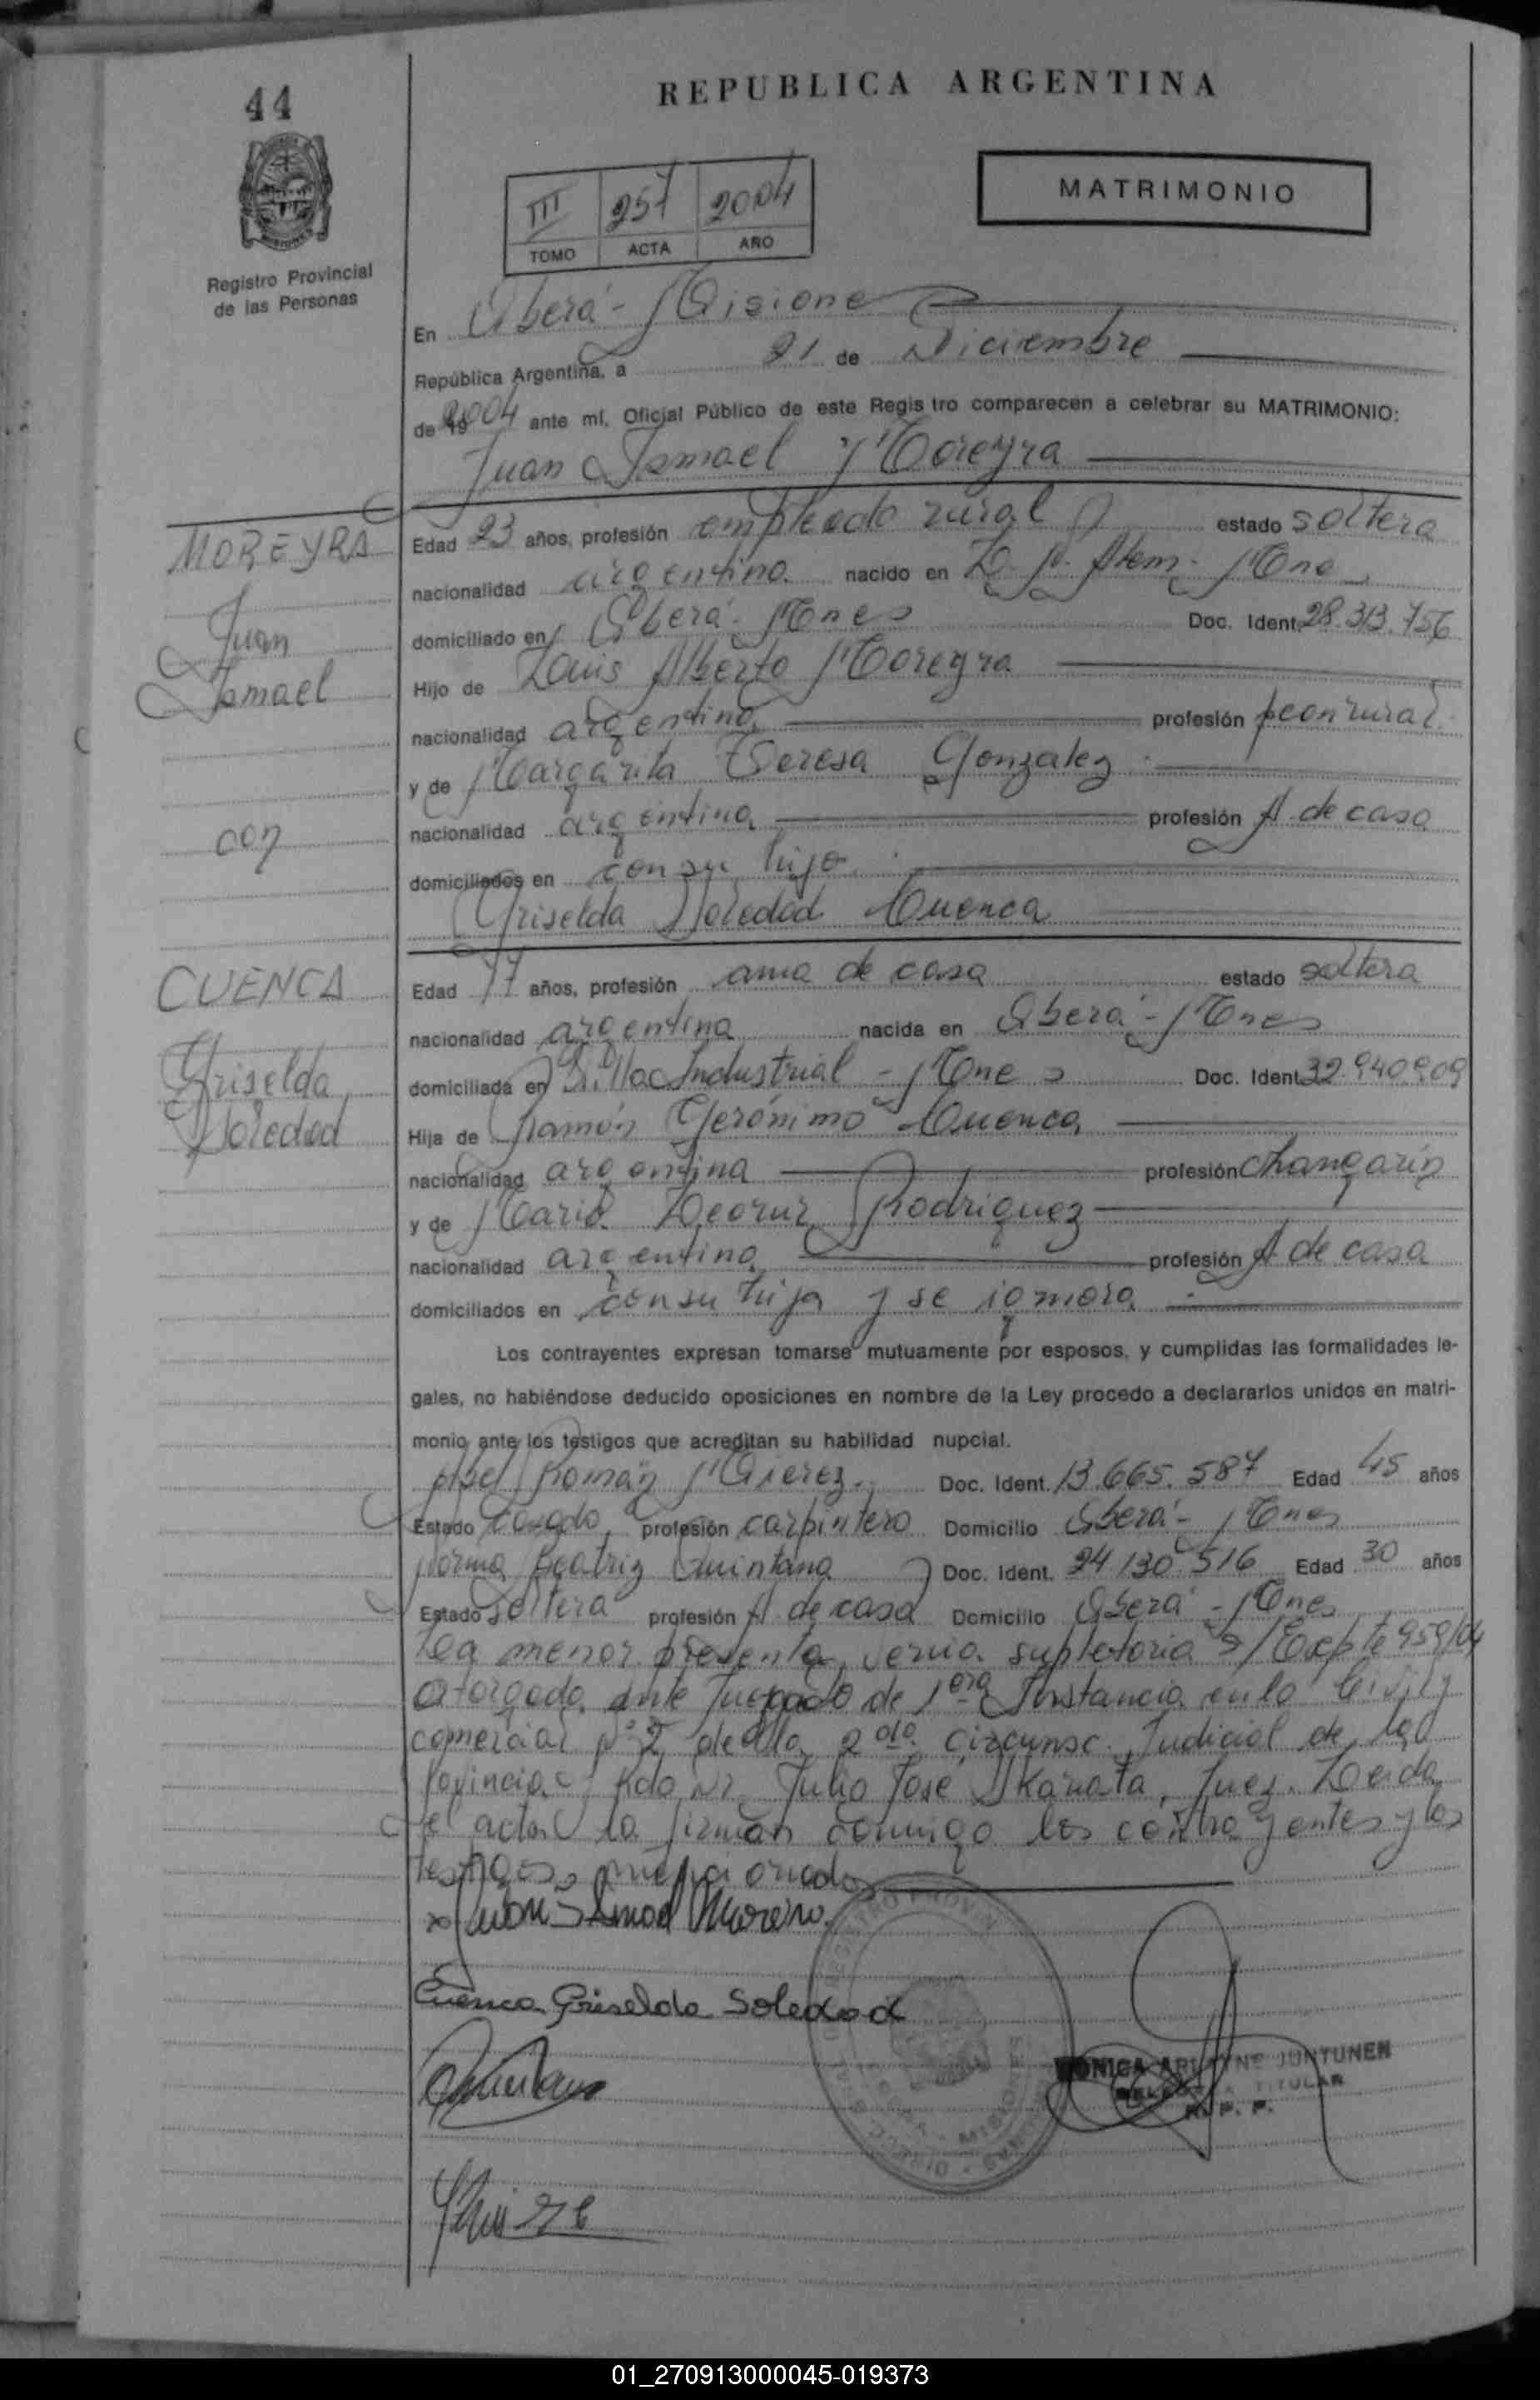 44
REPUBLICA ARGENTINA
MATRIMONIO
III 257 2004
TOMO ACTA AÑO
Registro Provincial
de las Personas
En Oberá - Misiones
República Argentina, a 21 de Diciembre
de 2004 ante mí, Oficial Público de este Registro comparecen a celebrar su MATRIMONIO:
Juan Ismael Moreyra
MOREYRA
Juan
Ismael
con
CUENCA
Griselda
Soledad
Edad 23 años, profesión empleado rural estado soltero
nacionalidad argentino nacido en L. N. Alem - Mnes
domiciliado en Oberá - Mnes Doc. Ident. 28.313.756
Hijo de Luis Alberto Moreyra
nacionalidad argentino profesión peon rural
y de Margarita Teresa Gonzalez
nacionalidad argentina profesión A. de casa
domiciliados en con su hijo
Griselda Soledad Cuenca
Edad 17 años, profesión ama de casa estado soltera
nacionalidad argentina nacida en Oberá - Mnes
domiciliada en Villa Industrial - Mnes Doc. Ident. 32.940.909
Hija de Ramón Gerónimo Cuenca
nacionalidad argentina profesión changarín
y de María Rodriguez
nacionalidad argentina profesión A. de casa
domiciliados en con su hija y se ignora
Los contrayentes expresan tomarse mutuamente por esposos, y cumplidas las formalidades le-
gales, no habiéndose deducido oposiciones en nombre de la Ley procedo a declararlos unidos en matri-
monio ante los testigos que acreditan su habilidad nupcial.
Román Doc. Ident. 13.665.587 Edad 45 años
Estado casado profesión carpintero Domicilio Oberá - Mnes
Norma Beatriz Quintana Doc. Ident. 24.130.516 Edad 30 años
Estado soltera profesión A. de casa Domicilio Oberá - Mnes
La menor presenta venia supletoria s/Expte 959/04
otorgada ante Juzgado de 1era Instancia en lo Civil y
comercial Nº 2 de la 2da circunsc. Judicial de la
Provincia Fdo Dr. Julio José, Juez. Leida
el acta la firman conmigo los contrayentes y los
testigos mencionados
Cuenca Griselda Soledad
MONICA JUNTUNEN
TITULAR
R. P. P.
01_270913000045-019373